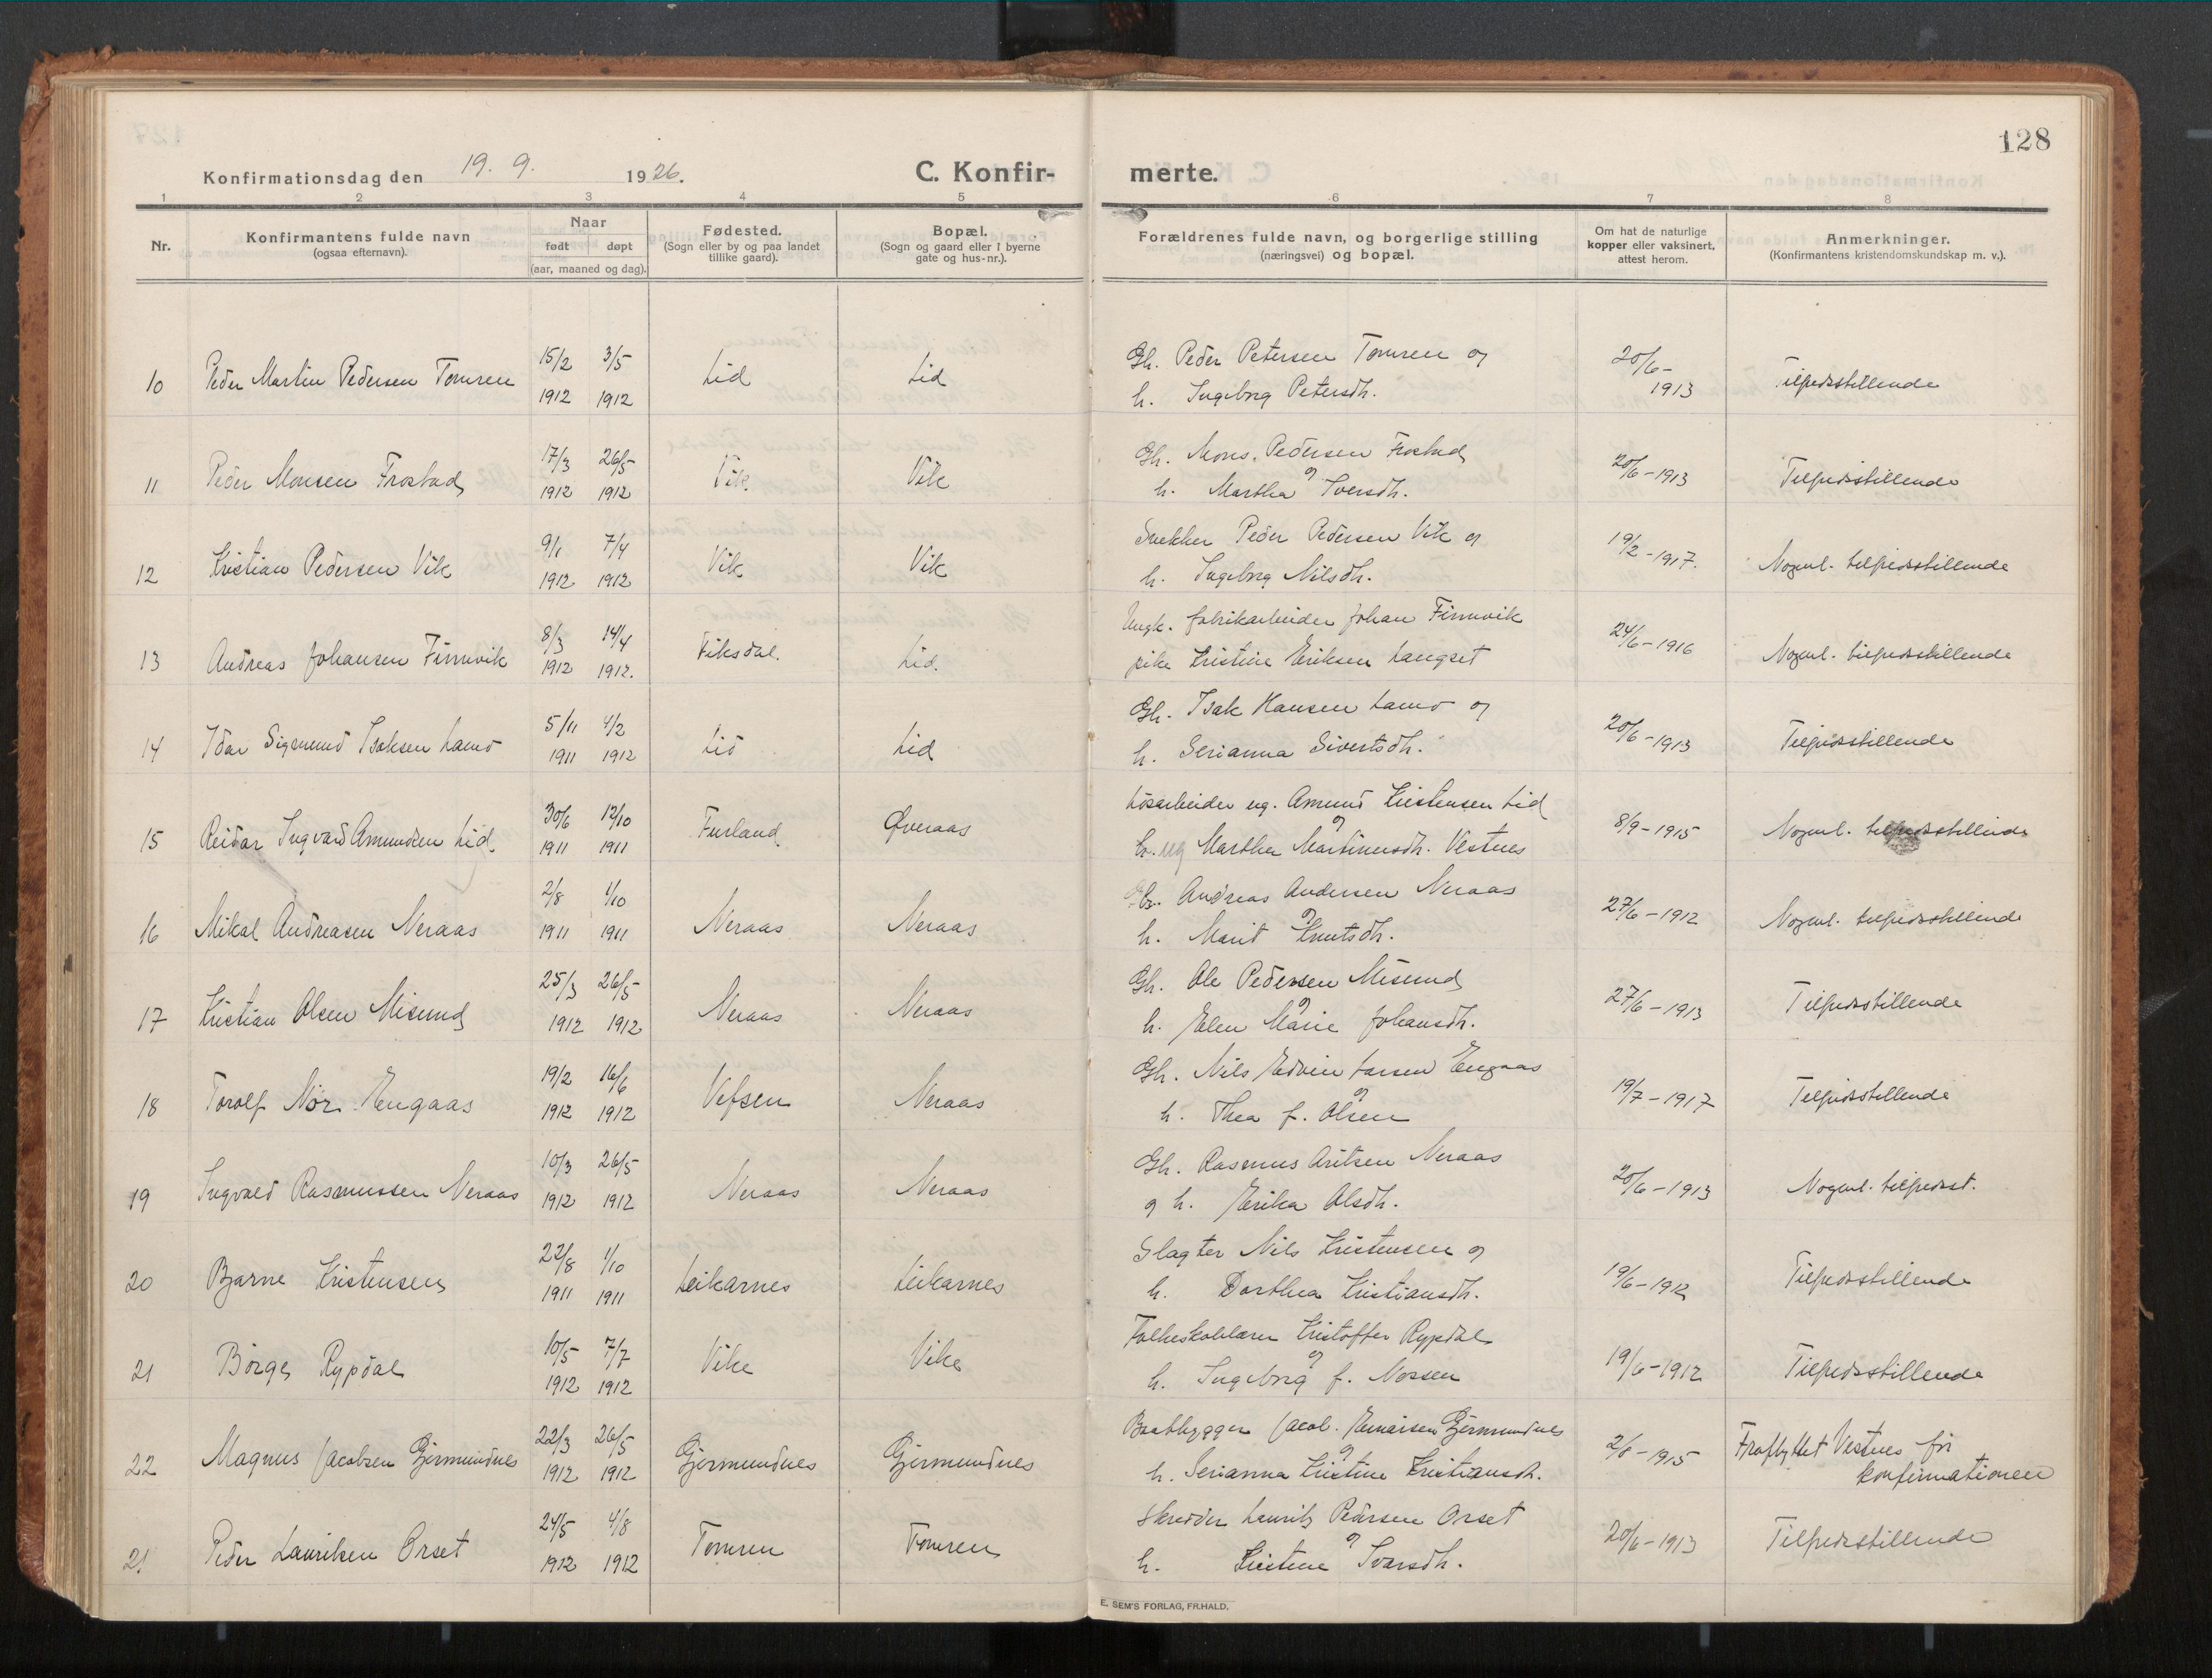 128
Konfirmationsdag den 19. 9. 1926. C. Konfir- merte.
1 2 3 4 5 6 7 8
Nr.
Konfirmantens fulde navn
(ogsaa efternavn).
Naar
født døpt
(aar, maaned og dag).
Fødested.
(Sogn eller by og paa landet
tillike gaard).
Bopæl.
(Sogn og gaard eller i byerne
gate og hus-nr.).
Forældrenes fulde navn, og borgerlige stilling
(næringsvei) og bopæl.
Om hat de naturlige
kopper eller vaksinert,
attest herom.
Anmerkninger.
(Konfirmantens kristendomskundskap m. v.).
15/2 3/5 Gh. Peder Petersen Tomren og 20/6-
10 Peder Martin Pedersen Tomren 1912 1912 Lid Lid h. Ingeborg Petersdh. 1913 Tilfredsstillende
17/3 26/5 Gh. Mons Pedersen Frostad
11 Peder Monsen Frostad 1912 1912 Vik Vik og h. Martha Iversdh. 20/6-1913 Tilfredsstillende
9/1 7/4 Snekker Peder Pedersen Vik og
12 Kristian Pedersen Vik 1912 1912 Vik Vik h. Ingeborg Nilsdh. 19/2-1917. Nogenl. tilfredsstillende
8/3 14/4 Ungk. fabrikarbeider Johan Finnvik
13 Andreas Johansen Finnvik 1912 1912. Viksdal. Lid. pike Kristine Eriksen Langset 24/6-1916 Nogenl. tilfredsstillende
5/11 4/2 Gh. Isak Hansen Lamo og
14 Idar Sigmund Isaksen Lamo 1911 1912 Lid Lid h. Serianna Sivertsdh. 20/6-1913 Tilfredsstillende
30/6 12/10 Løsarbeider ug. Amund Kristensen Lid
15 Reidar Ingvard Amundsen Lid. 1911 1911 Furland Øveraas og ug Martha Martinusdh. Vestnes 8/9-1915 Nogenl. tilfredsstillende
2/8 1/10 Andreas Andersen Neraas
16 Mikal Andreasen Neraas 1911 1911 Neraas Neraas og h. Marit Knutsdh. 27/6-1912 Nogenl. tilfredsstillende
25/3 26/5 Gh. Ole Pedersen Misund
17 Kristian Olsen Misund 1912 1912 Neraas Neraas og h. Elen Marie Johansdh. 27/6-1913 Tilfredsstillende
19/2 16/6 Gh. Nils Edvin Larsen Engaas
18 Torolf Nör Engaas 1912 1912 Vefsen Neraas og h. Thea f. Olsen 19/7-1917 Tilfredsstillende
10/3 26/5 Gh. Rasmus Neraas
19 Ingvald Rasmussen Neraas 1912 1912 Neraas Neraas og h. Erika Olsdh. 20/6-1913 Nogenl. tilfredsst.
22/8 1/10 Slagter Nils Kristensen og
20 Bjarne Kristensen 1911 1911 Leikarnes Leikarnes h. Dorthea Kristiansdh. 19/6-1912 Tilfredsstillende
10/5 7/7 Folkeskolelærer Kristoffer Rypdal
21 Börge Rypdal 1912 1912 Vike Vike og h. Ingeborg f. Nossen 19/6-1912 Tilfredsstillende
22/3 26/5 Baatbygger Jacob Gjermundnes
22 Magnus Jacobsen Gjermundnes 1912 1912 Gjermundnes Gjermundnes og h. Serianna Kristine Kristiansdh. 2/8-1915 Fraflyttet Vestnes før
konfirmationen
24/5 4/8 Skredder Laurits Pedersen Orset
21. Peder Lauritsen Orset 1912 1912 Tomren Tomren og h. Kristine Ivarsdh. 20/6-1913 Tilfredsstillende
E. SEM'S FORLAG, FR.HALD.